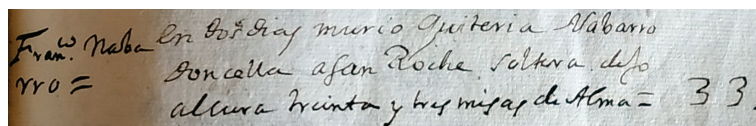 Fran.co Naba
rro =
En dos dias murio Quiteria Nabarro
doncella a San Roche soltera dejo
al cura treinta y tres misas de Alma = 33.